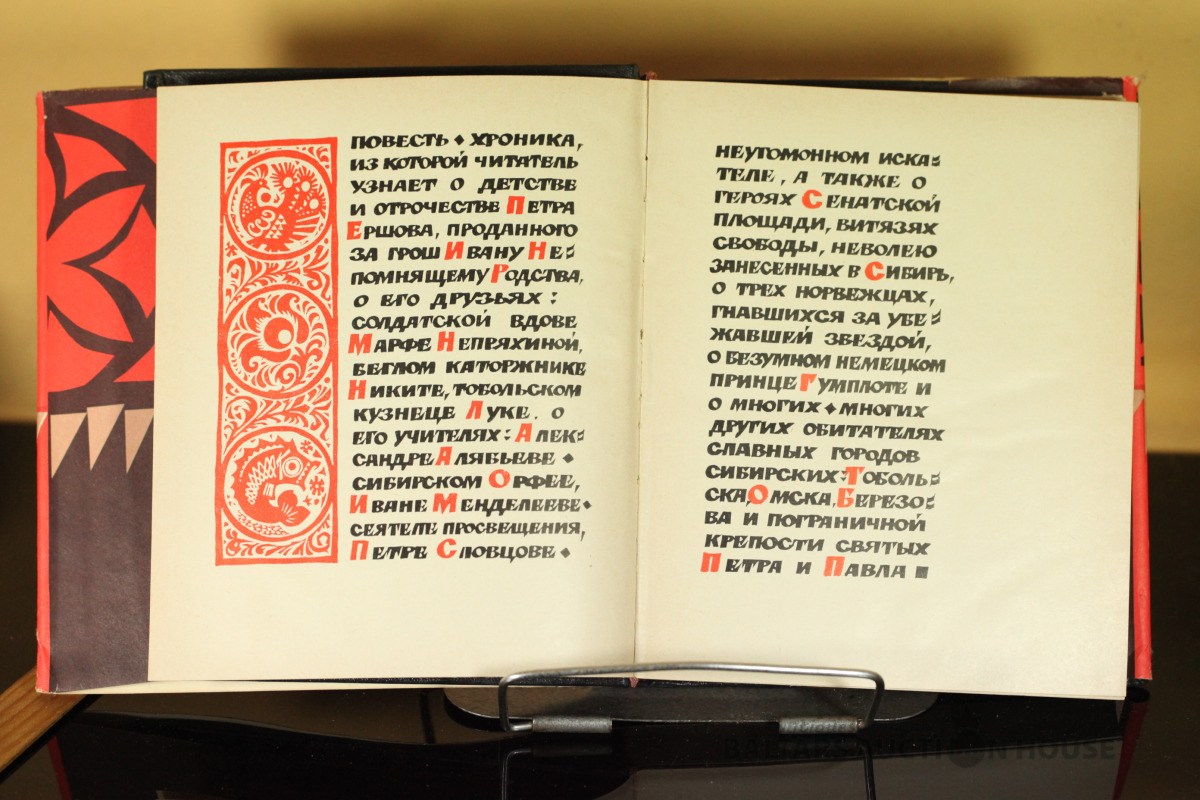 ПОВЕСТЬ ◆ ХРОНИКА,
ИЗ КОТОРОЙ ЧИТАТЕЛЬ
УЗНАЕТ О ДЕТСТВЕ
И ОТРОЧЕСТВЕ ПЕТРА
ЕРШОВА, ПРОДАННОГО
ЗА ГРОШ ИВАНУ НЕ:
ПОМНЯЩЕМУ РОДСТВА,
О ЕГО ДРУЗЬЯХ:
СОЛДАТСКОЙ ВДОВЕ
МАРФЕ НЕПРЯХИНОЙ,
БЕГЛОМ КАТОРЖНИКЕ
НИКИТЕ, ТОБОЛЬСКОМ
КУЗНЕЦЕ ЛУКЕ. О
ЕГО УЧИТЕЛЯХ: АЛЕК:
САНДРЕ АЛЯБЬЕВЕ ◆
СИБИРСКОМ ОРФЕЕ,
ИВАНЕ МЕНДЕЛЕЕВЕ ◆
СЕЯТЕЛЕ ПРОСВЕЩЕНИЯ,
ПЕТРЕ СЛОВЦОВЕ ◆
НЕУГОМОННОМ ИСКА:
ТЕЛЕ, А ТАКЖЕ О
ГЕРОЯХ СЕНАТСКОЙ
ПЛОЩАДИ, ВИТЯЗЯХ
СВОБОДЫ, НЕВОЛЕЮ
ЗАНЕСЕННЫХ В СИБИРЬ,
О ТРЕХ НОРВЕЖЦАХ,
ГНАВШИХСЯ ЗА УБЕ:
ЖАВШЕЙ ЗВЕЗДОЙ,
О БЕЗУМНОМ НЕМЕЦКОМ
ПРИНЦЕ ГУМПЛОТЕ И
О МНОГИХ ◆ МНОГИХ
ДРУГИХ ОБИТАТЕЛЯХ
СЛАВНЫХ ГОРОДОВ
СИБИРСКИХ: ТОБОЛЬ:
СКА, ОМСКА, БЕРЕЗО:
ВА И ПОГРАНИЧНОЙ
КРЕПОСТИ СВЯТЫХ
ПЕТРА И ПАВЛА ■
СССР
BALTARS AUCTION HOUSE